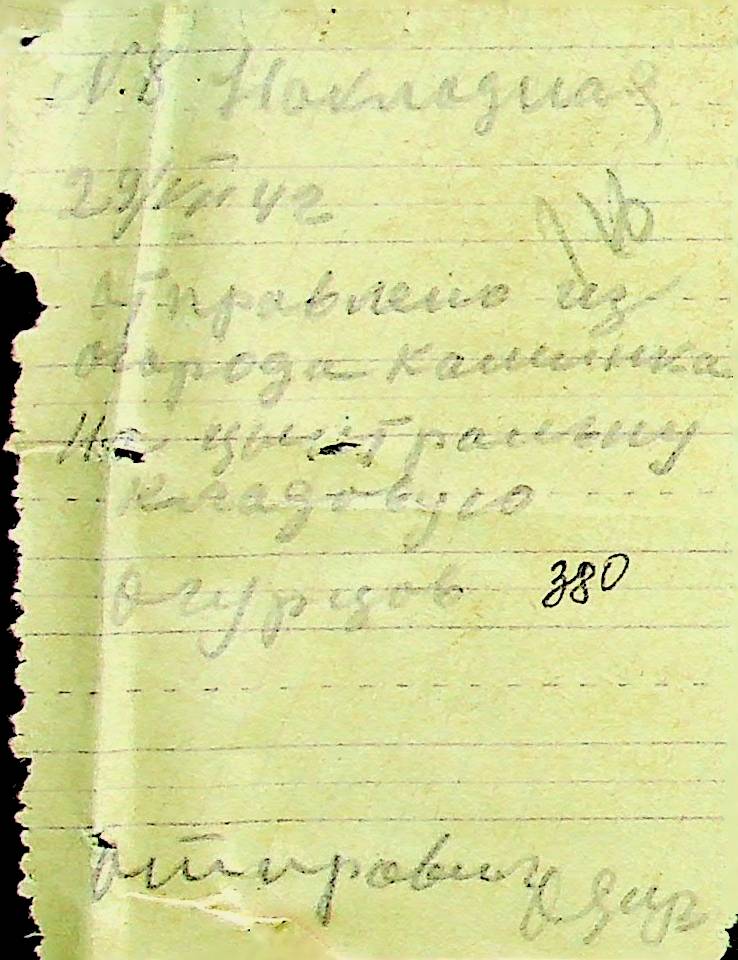 N.8 Накладная
29/VIII 42
отправлено из
огорода калинка
На цынтралну
кладовую
Огурцов 380
отправил